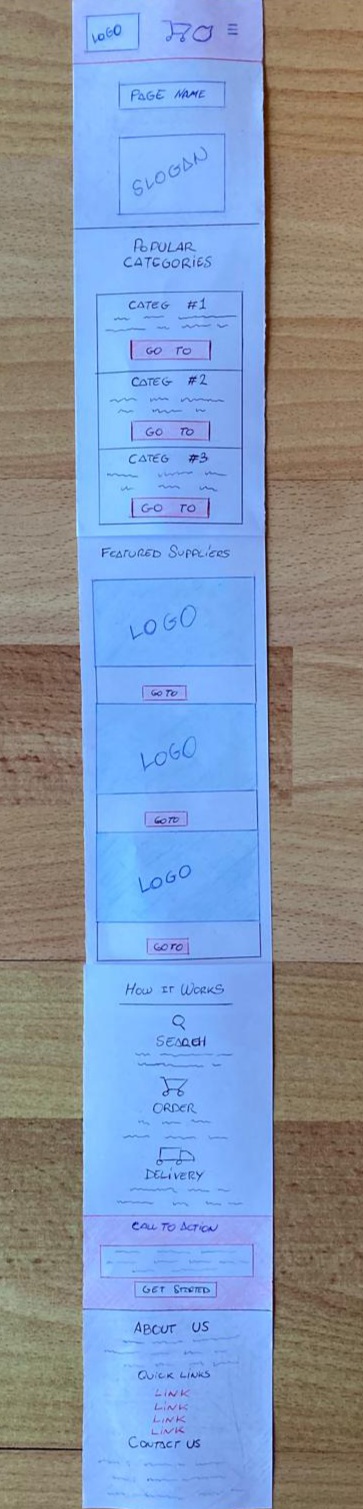 LOGO
PAGE NAME
SLOGAN
POPULAR
CATEGORIES
CATEG #1
GO TO
CATEG #2
GO TO
CATEG #3
GO TO
FEATURED SUPPLIERS
LOGO
GO TO
LOGO
GO TO
LOGO
GO TO
HOW IT WORKS
SEARCH
ORDER
DELIVERY
CALL TO ACTION
GET STARTED
ABOUT US
QUICK LINKS
LINK
LINK
LINK
LINK
CONTACT US